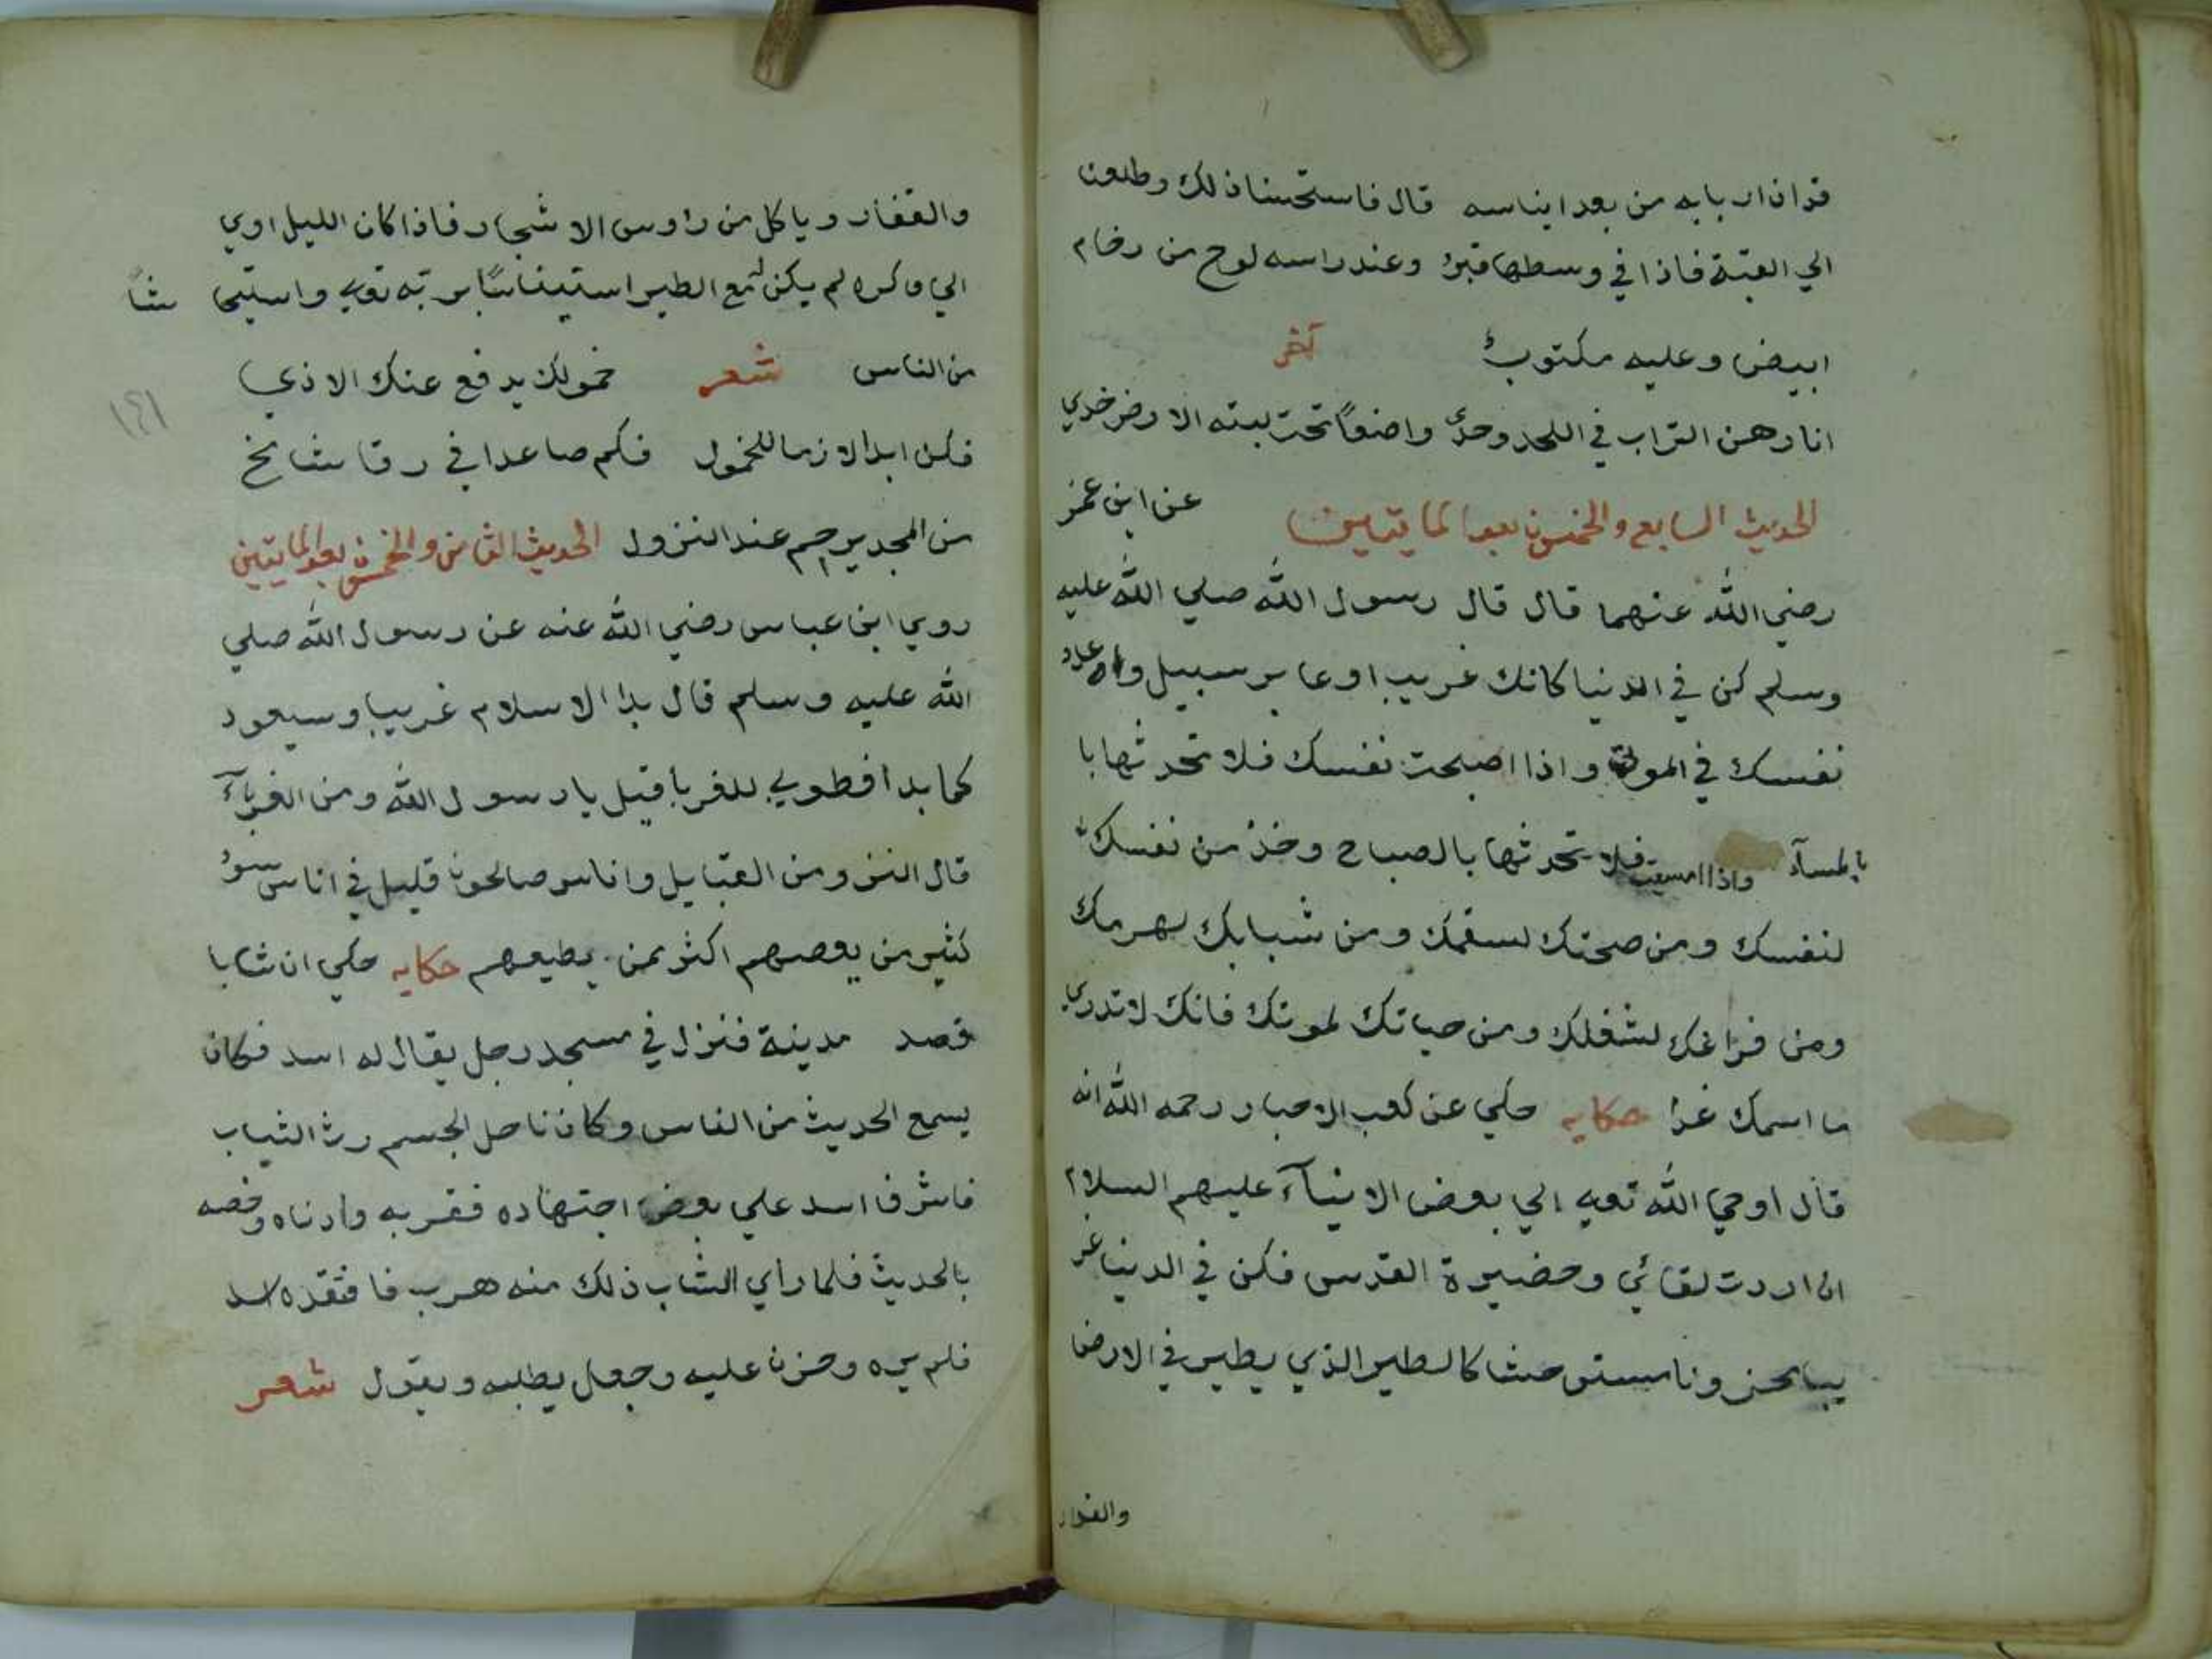 قد اذن اربابه من بعد ايناسه قال فاستحسنا ذلك وطلعنا
الي القبة فاذا في وسطها قبرٌ وعند راسه لوح من رخام
ابيض وعليه مكتوبٌ آخر
انا رهن التراب في اللحد وحدي واضعاً تحت لبنه الارض خدي
الحديث السابع والخمسون بعد المايتين عن ابن عمر
رضي الله عنهما قال قال رسول الله صلي الله عليه
وسلم كن في الدنيا كانك غريب او عابر سبيل وعد
نفسك في الموتي واذا اصبحت نفسك فلا تحدثها با
بالمسآء واذا امسيت فلا تحدثها بالصباح وخذ من نفسك
لنفسك ومن صحتك لسقمك ومن شبابك لهرمك
ومن فراغك لشغلك ومن حياتك لموتك فانك لا تدري
ما اسمك غدا حكايه حكي عن كعب الاحبار رحمه الله انه
قال اوحي الله تعيه الي بعض الانبيآء عليهم السلام
ان اردت لقائي وحضيرة القدس فكن في الدنيا غر
يبا محزونا مستوحشا كالطير الذي يطير في الارض
والقفار
والقفار وياكل من راوس الاشجار فاذا كان الليل اوي
الي وكره لم يكن مع الطير استيناسًا بربه تعيه واستيحا شاً
من الناس شعر خمولك يدفع عنك الاذي
١٤١
فكن ابدا لازما للخمول فكم صاعدا في رقا شامخ
من المجد يرجم عند النزول الحديث الثامن والخمسون بعد المايتين
روي ابن عباس رضي الله عنه عن رسول الله صلي
الله عليه وسلم قال بدا الاسلام غريبا وسيعود
كما بدا فطوبي للغربا قيل يا رسول الله ومن الغربآء
قال النز ومن القبايل واناس صالحون قليل في اناس سوءٍ
كثير من يعصهم اكثر ممن يطيعهم حكايه حكي ان شابا
قصد مدينة فنزل في مسجد رجل يقال له اسد فكان
يسمع الحديث من الناس وكان ناحل الجسم رث الثياب
فاشرف اسد علي بعض اجتهاده فقربه وادناه وخصه
بالحديث فلما راي الشاب ذلك منه هرب فافتقده اسد
فلم يره وحزن عليه وجعل يطلبه ويقول شعر